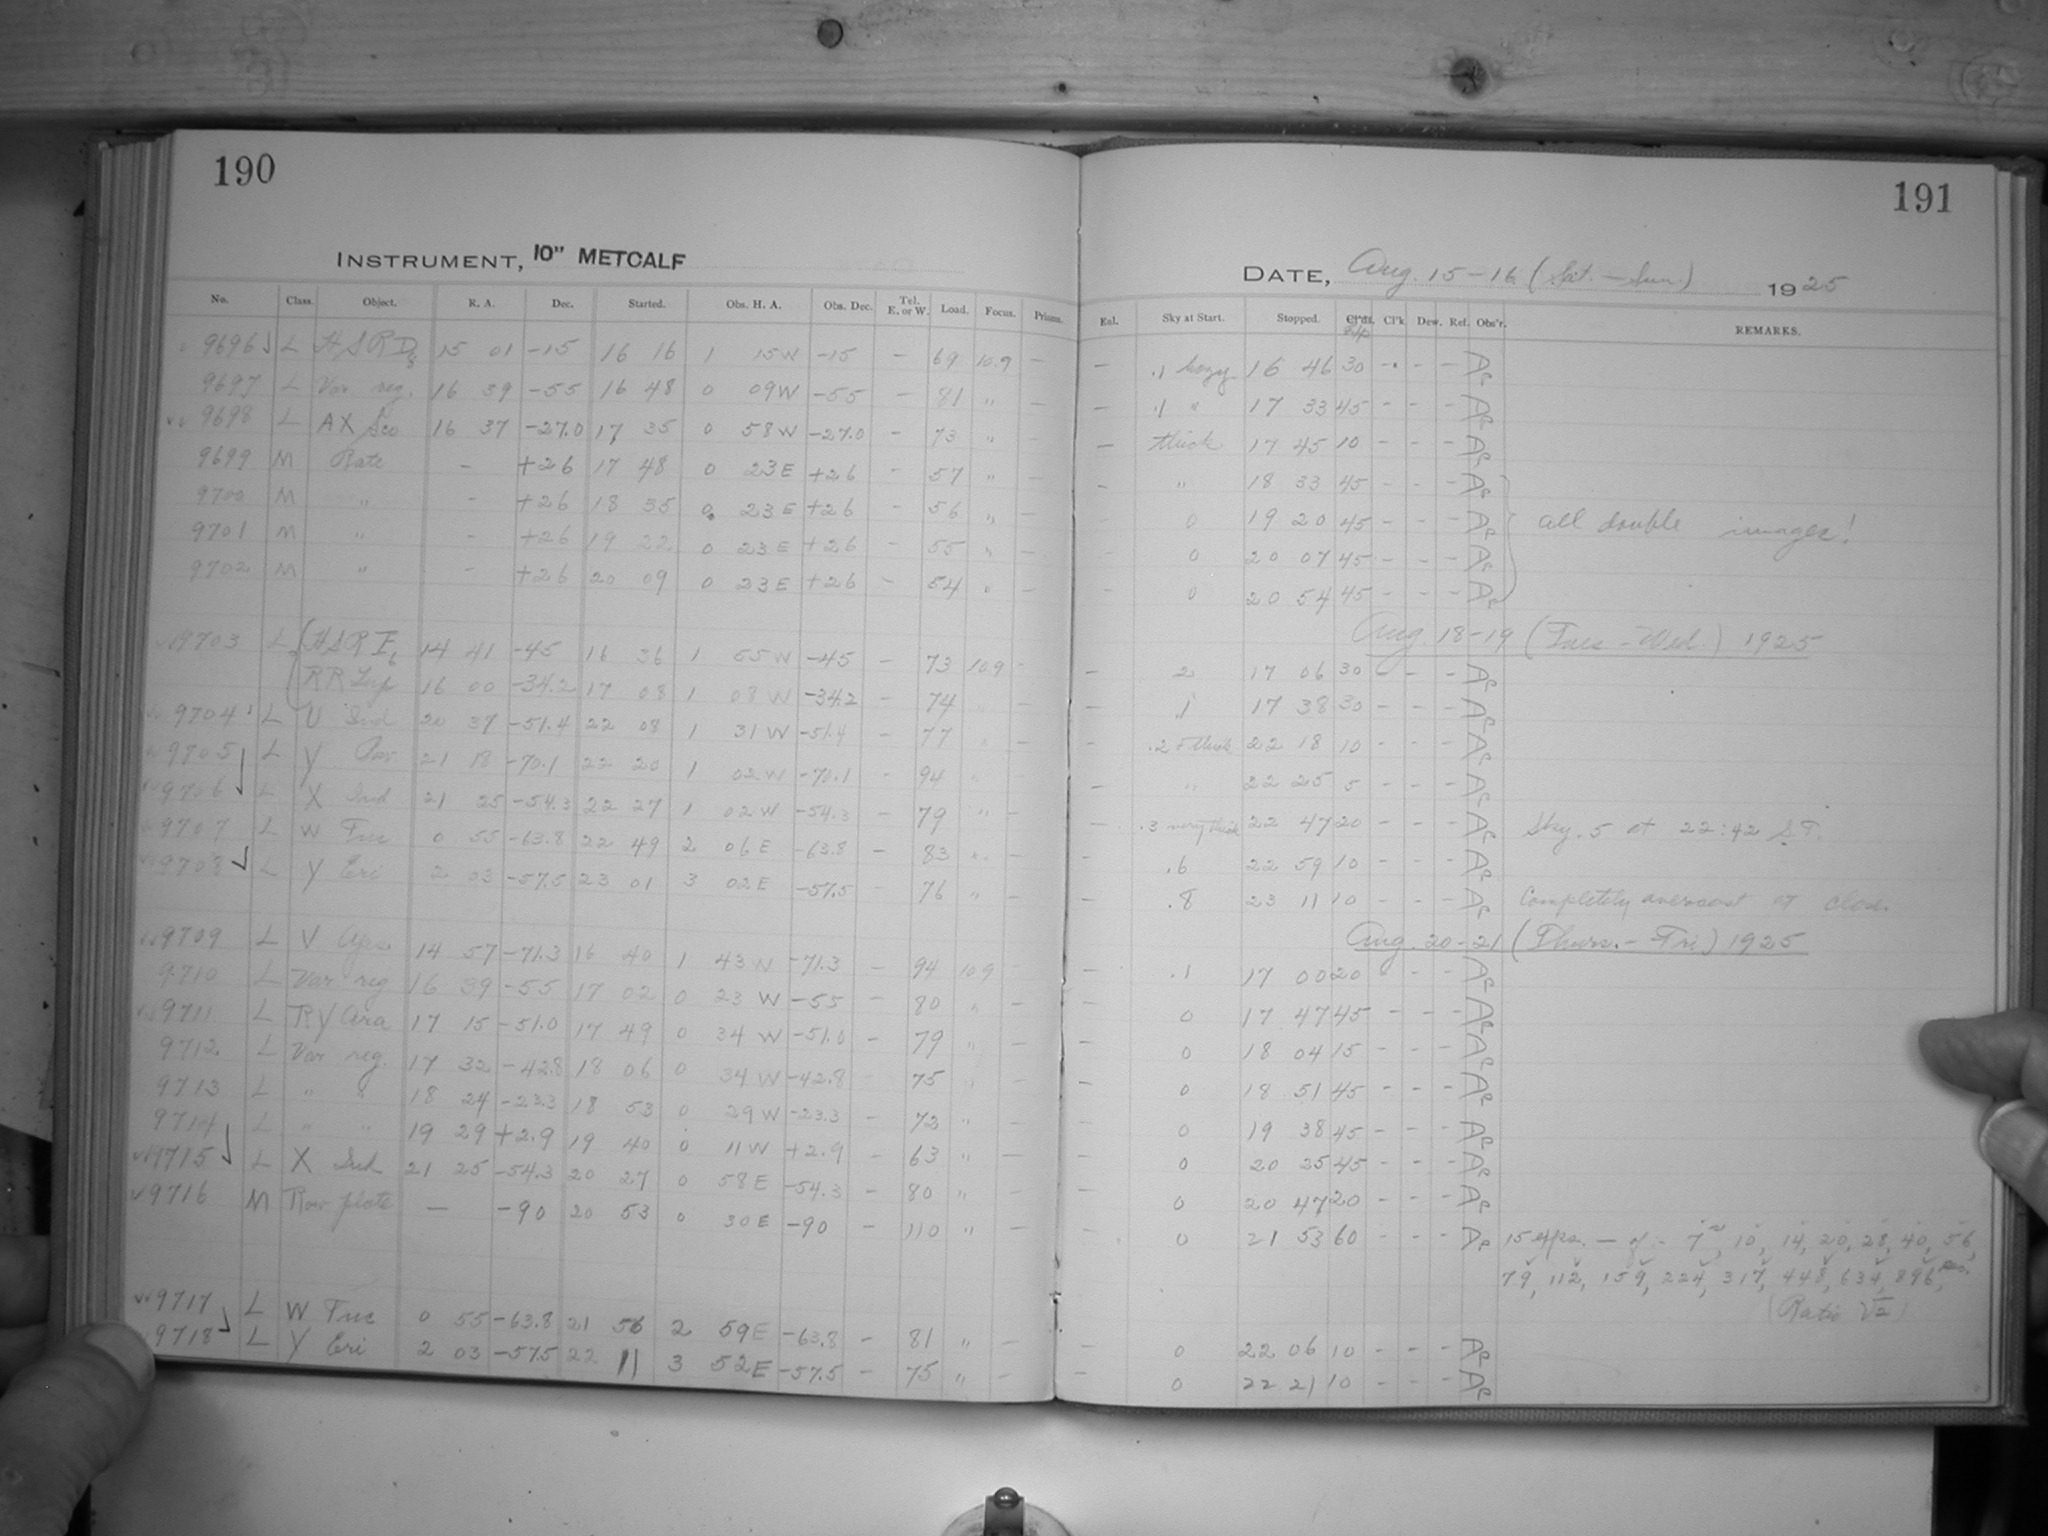 190
INSTRUMENT, 10" METCALF
No. Class. Object. R. A. Dec. Started. Obs. H. A. Obs. Dec. Tel. E. or W. Load. Focus. Prisms.
9696 L HSRD6 15 01 -15 16 16 1 15W -15 - 69 10.9 -
9697 L Var reg. 16 39 -55 16 48 0 09W -55 - 81 " -
9698 L AX Sco 16 37 -27.0 17 35 0 58W -27.0 - 73 " -
9699 M Rate - +26 17 48 0 23E +26 - 57 " -
9700 M " - +26 18 35 0 23E +26 - 56 " -
9701 M " - +26 19 22 0 23E +26 - 55 " -
9702 M " - +26 20 09 0 23E +26 - 54 " -
9703 L HSR 14 41 -45 16 36 1 55W -45 - 73 10.9 -
RR Lup 16 00 -34.2 17 08 1 08W -34.2 - 74 " -
9704 L U Ind 20 37 -51.4 22 08 1 31W -51.4 - 77 " -
9705 L Y Pav 21 18 -70.1 22 20 1 02W -70.1 - 94 " -
9706 L X Ind 21 25 -54.3 22 27 1 02W -54.3 - 79 " -
9707 L W Tuc 0 55 -63.8 22 49 2 06E -63.8 - 83 " -
9708 L Y Eri 2 03 -57.5 23 01 3 02E -57.5 - 76 " -
9709 L V Aps. 14 57 -71.3 16 40 1 43W -71.3 - 94 10.9 -
9710 L Var reg 16 39 -55 17 02 0 23W -55 - 80 " -
9711 L RY Ara 17 15 -51.0 17 49 0 34W -51.0 - 79 " -
9712 L Var reg. 17 32 -42.8 18 06 0 34W -42.8 - 75 " -
9713 L " " 18 24 -23.3 18 53 0 29W -23.3 - 72 " -
9714 L " " 19 29 +2.9 19 40 0 11W +2.9 - 63 " -
9715 L X Ind 21 25 -54.3 20 27 0 58E -54.3 - 80 " -
9716 M Row plate — -90 20 53 0 30E -90 - 110 " -
9717 L W Tuc 0 55 -63.8 21 56 2 59E -63.8 - 81 " -
9718 L Y Eri 2 03 -57.5 22 11 3 52E -57.5 - 75 " -
191
DATE, Aug. 15-16 (Sat. - Sun.) 1925
Enl. Sky at Start. Stopped. Cl'ds. Exp Cl'k Dew. Ref. Obs'r. REMARKS.
- .1 hazy 16 46 30 - - -
- .1 " 17 33 45 - - -
- thick 17 45 10 - - -
- " 18 33 45 - - -
- 0 19 20 45 - - - all double images!
- 0 20 07 45 - - -
- 0 20 54 45 - - -
Aug. 18-19 (Tues - Wed.) 1925
- 2 17 06 30 - - -
- .1 17 38 30 - - -
- .2 + thick 22 18 10 - - -
- " 22 25 5 - - -
- .3 very thick 22 47 20 - - - Sky .5 at 22:42 S.T.
- .6 22 59 10 - - -
- .8 23 11 10 - - - Completely overcast at close.
Aug. 20-21 (Thurs. - Fri) 1925
- .1 17 00 20 - - -
- 0 17 47 45 - - -
- 0 18 04 15 - - -
- 0 18 51 45 - - -
- 0 19 38 45 - - -
- 0 20 25 45 - - -
- 0 20 47 20 - - -
- 0 21 53 60 - - - 15 exps. — of - 7, 10, 14, 20, 28, 40, 56,
79, 112, 159, 224, 317, 448, 634, 896 sec.
(Ratio √2)
- 0 22 06 10 - - -
- 0 22 21 10 - - -